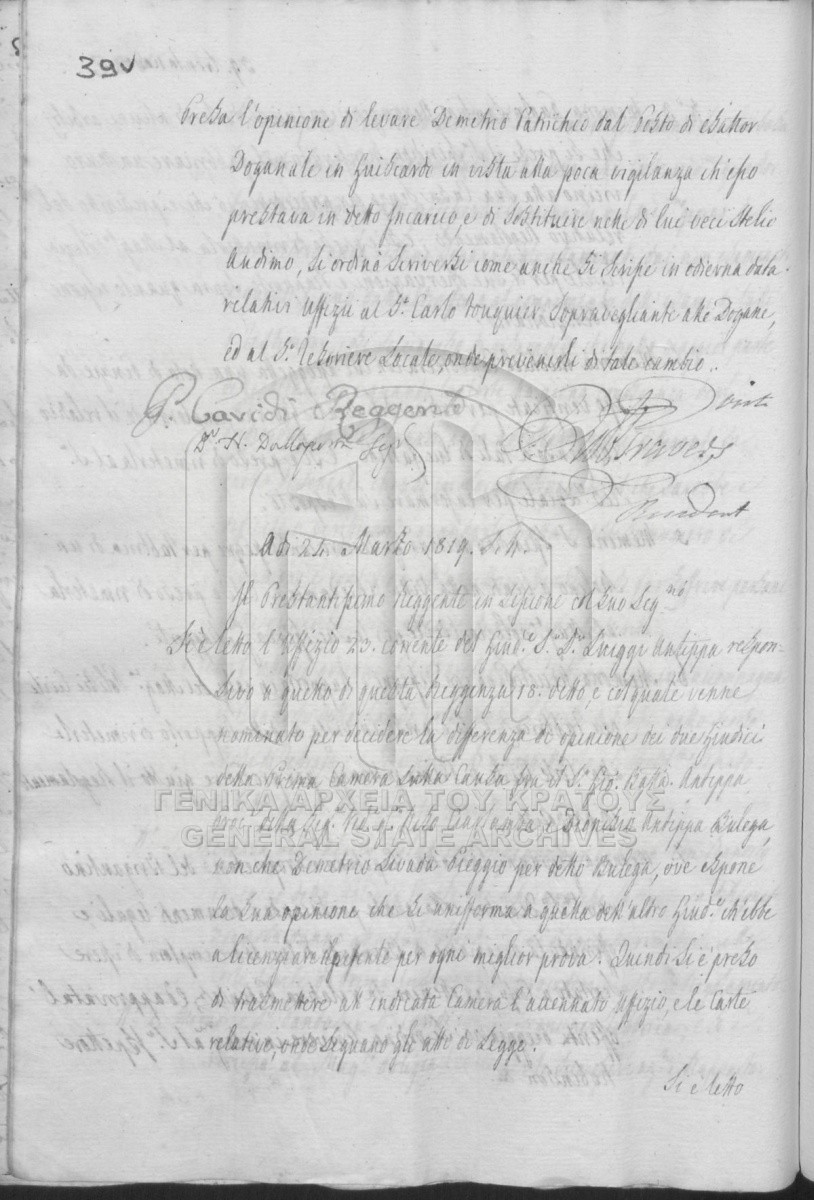 39v
Presa l'opinione di levare Demetrio Patrichio dal Posto di Esattor
Doganale in Guiscardi in vista alla poca vigilanza ch'esso
prestava in detto Incarico, e di sostituire nelle di lui veci Stelio
Andimo, si ordinò scriversi come anche si scrisse in odierna data
relativi Uffizii al Sr. Carlo Touquier Sopravegliante alle Dogane,
ed al Sr. Tesoriere Locale, onde prevenirli di tale cambio.
G. Cavidi Reggente
Dr. N. Dallaporta Segr
visto
Travers
Resident
Adi 24 Marzo 1819. S.N.
Il Prestantissimo Reggente in Sessione col suo Segno
Si è letto l'Uffizio 23. corrente del Giude. Sr. Dr. Luiggi Antippa respon-
sivo a quello di questa Reggenza 18. detto, e col quale venne
nominato per decidere la differenza di opinione dei due Giudici
della Prima Camera sulla Causa fra il Sr. Gio. Antippa
e Dionisio Antippa Bulega,
non che Demetrio Livadà Pieggio per detto Bulega, ove espone
la sua opinione che si unifforma a quella dell'altro Giude. ch'ebbe
a licenziare il presente per ogni miglior prova. Quindi si è preso
di trasmettere all'indicata Camera l'accennato Uffizio, e le Carte
relative, onde seguano gli atti di Legge.
Si è letto
ΓΕΝΙΚΑ ΑΡΧΕΙΑ ΤΟΥ ΚΡΑΤΟΥΣ
GENERAL STATE ARCHIVES